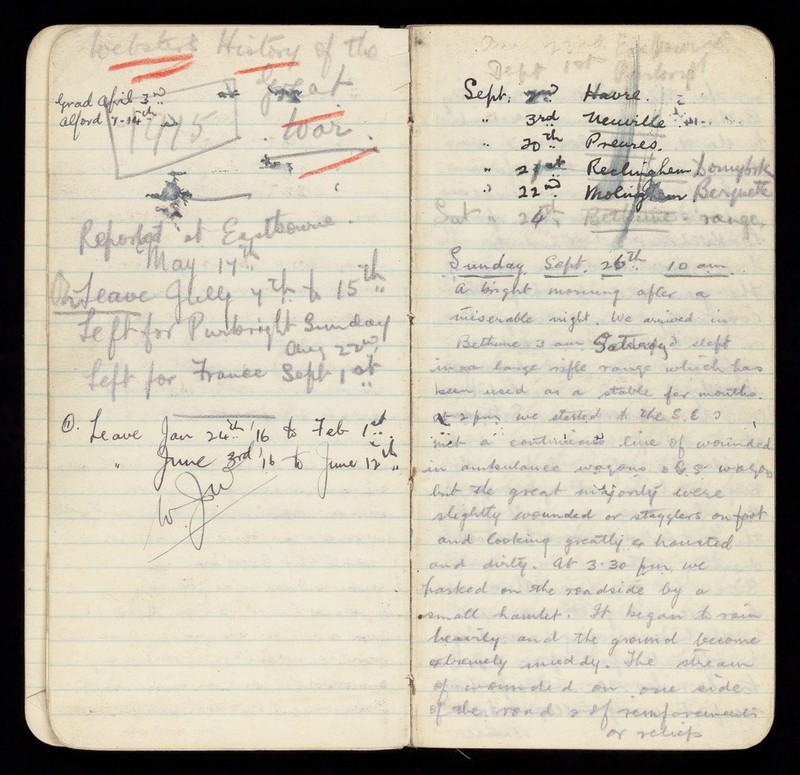 Webster's History of the
Great
War.
Grad April 3rd
Alford 7-14th
1915
Reported at Eastbourne.
May 17th
On Leave July 4th to 15th
Left for Purbright Sunday
Aug 22nd
Left for France Sept 1st
①. Leave Jan 24th '16 to Feb 1st.
" June 3rd '16 to June 12th
W. J. W
Eastbourne
Dept 1st Purbright
Sept. 2nd Havre.
" 3rd Neuville
" 20th Preures.
" 21st Reclinghem
" 22nd Molinghem Berguette
Sat " 24th Bethune - range.
Sunday Sept. 26th 10 am
A bright morning after a
miserable night. We arrived in
Bethune 3 am Saturday & slept
in a large rifle range which has
been used as a stable for months.
At 2 pm we started to the S.E. &
met a continuous line of wounded
in ambulance wagons & G.S. wagons
but the great majority were
slightly wounded or stagglers on foot
and looking greatly exhausted
and dirty. At 3.30 pm we
parked on the roadside by a
small hamlet. It began to rain
heavily and the ground become
extremely muddy. The stream
of wounded on one side
of the road & of reinforcements
or reliefs